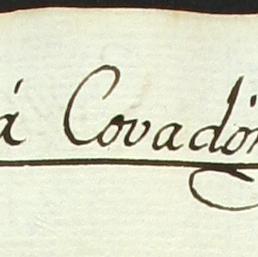 á Covadón